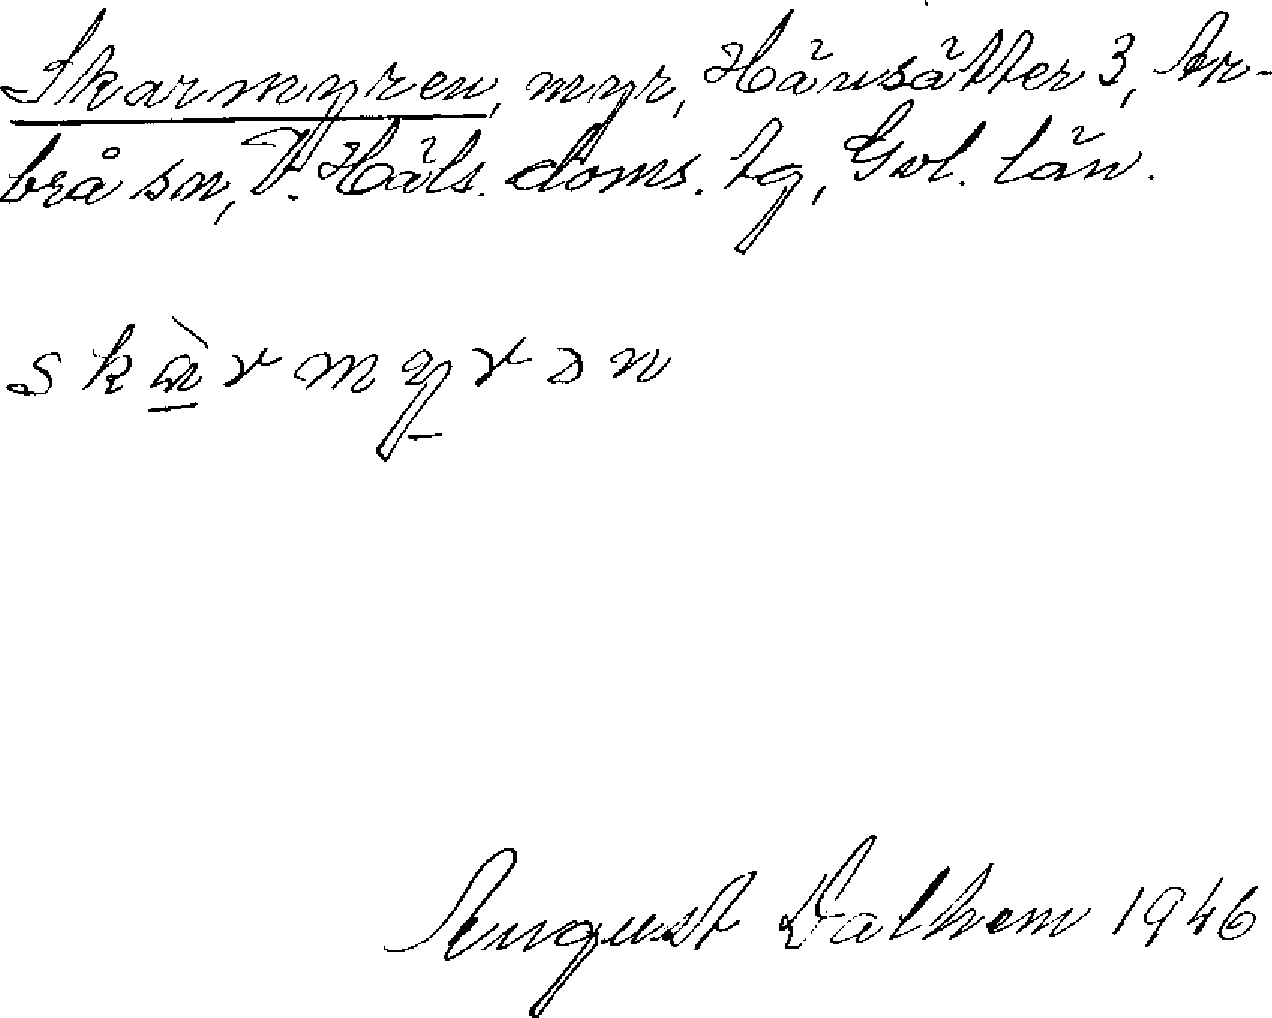 Skarmyren, myr, Hänsätter 3, Ar-
brå sn, V. Häls. doms. tg, Gvl. län.
skàrmyrən
August Dalhem 1946